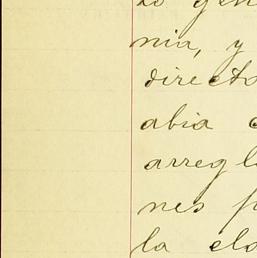 nia, y
directo
abia
arregl
nes p
la ela